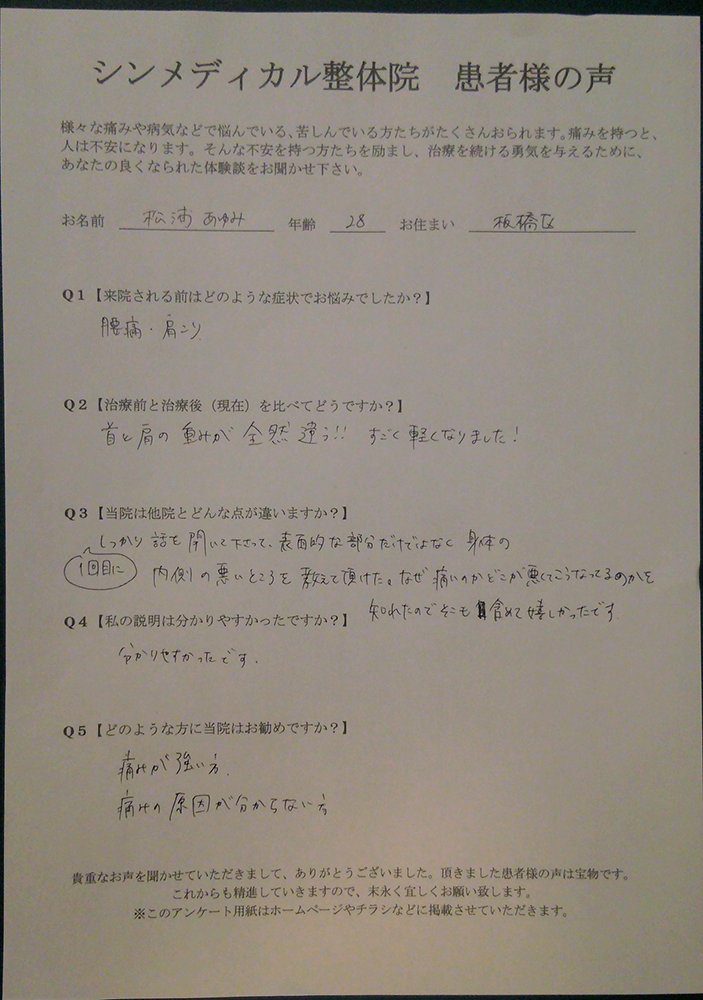 シンメディカル整体院　患者様の声
様々な痛みや病気などで悩んでいる、苦しんでいる方たちがたくさんおられます。痛みを持つと、
人は不安になります。そんな不安を持つ方たちを励まし、治療を続ける勇気を与えるために、
あなたの良くなられた体験談をお聞かせ下さい。
お名前　松浦 あゆみ　年齢　28　お住まい　板橋区
Q1【来院される前はどのような症状でお悩みでしたか?】
腰痛・肩こり
Q2【治療前と治療後（現在）を比べてどうですか?】
首と肩の重みが全然違う!! すごく軽くなりました!
Q3【当院は他院とどんな点が違いますか?】
しっかり話を聞いて下さって、表面的な部分だけではなく身体の
1回目に
内側の悪いところを教えて頂けた。なぜ痛いのかどこが悪くてこうなってるのかを
知れたのでそこも含めて嬉しかったです
Q4【私の説明は分かりやすかったですか?】
分かりやすかったです.
Q5【どのような方に当院はお勧めですか?】
痛みが強い方.
痛みの原因が分からない方
貴重なお声を聞かせていただきまして、ありがとうございました。頂きました患者様の声は宝物です。
これからも精進していきますので、末永く宜しくお願い致します。
※このアンケート用紙はホームページやチラシなどに掲載させていただきます。